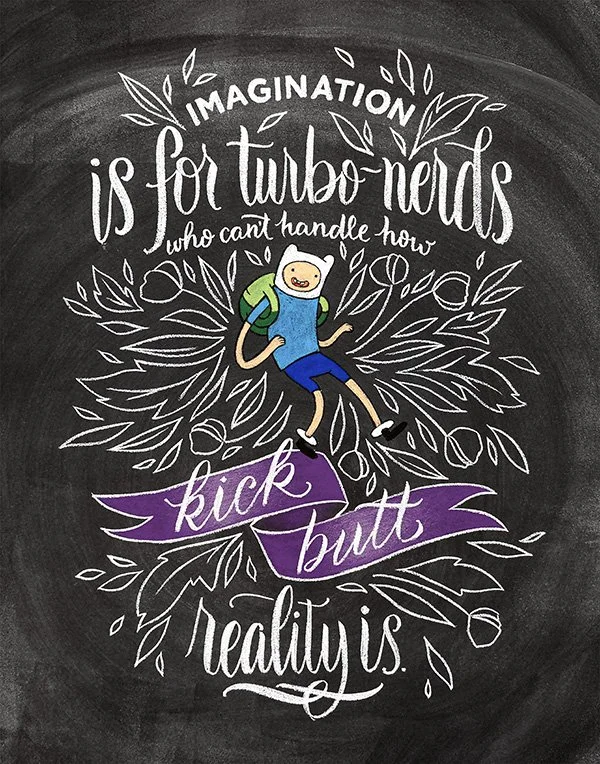 IMAGINATION
is for turbo-nerds
who can't handle how
kick
butt
reality is.